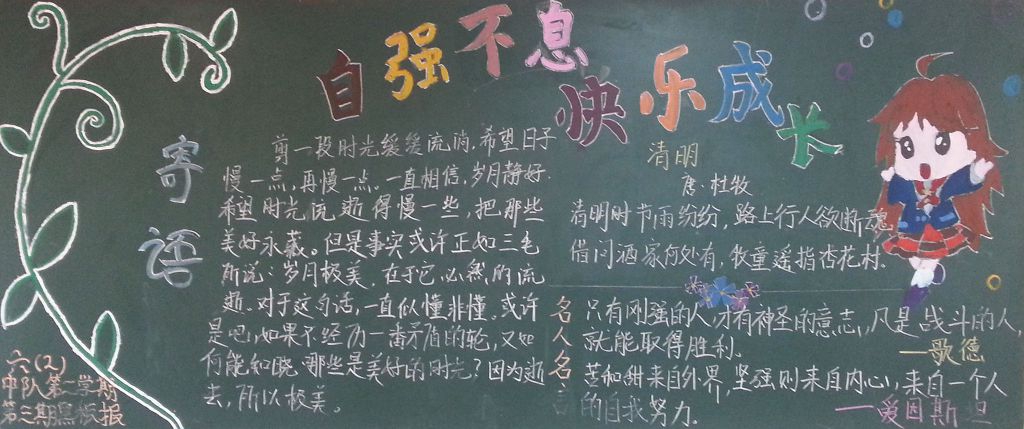 自强不息
快乐成长
寄语
剪一段时光缓缓流淌,希望日子
慢一点,再慢一点。一直相信,岁月静好.
希望时光流逝得慢一些,把那些
美好永藏。但是事实或许正如三毛
所说:岁月极美,在于它必然的流
逝。对于这句话,一直似懂非懂。或许
是吧,如果不经历一番矛盾的轮,又如
何能知晓,那些是美好的时光?因为逝
去,所以极美。
清明
唐·杜牧
清明时节雨纷纷,路上行人欲断魂
借问酒家何处有,牧童遥指杏花村.
名人名言
只有刚强的人,才有神圣的意志,凡是战斗的人,
就能取得胜利.
—歌德
苦和甜来自外界,坚强则来自内心,来自一个人
的自我努力.
——爱因斯坦
六(2)
中队第二学期
第三期黑板报